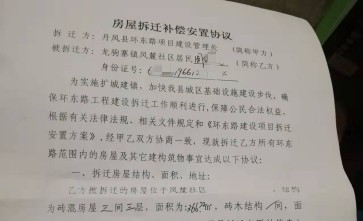 房屋拆迁补偿安置协议
拆 迁 方：丹凤县环东路项目建设管理处 （简称甲方）
被拆迁方：龙驹寨镇凤麓社区居民 （简称乙方）
身份证号： 196612
为实施扩城建镇、加快我县城区基础设施建设步伐，确
保环东路工程建设拆迁工作顺利进行，保障公民合法权益，
根据有关法律法规、相关文件规定和《环东路建设项目拆迁
安置方案》，经甲乙双方协商一致，现就拆迁乙方所有环东
路范围内的房屋及其它建筑物事宜达成以下协议：
一、拆迁房屋结构、面积、地址：
乙方被拆迁的房屋位于凤麓社区 ，结构
为砖混房屋三间三层，面积为: ㎡，砖木结构 间，面